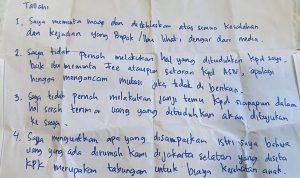 Tallahi
1. Saya meminta maaf dan atas semua kesalahan
dan kejadian yang Bapak/Ibu lihat dengar dari media.
2. Saya tidak pernah melakukan hal yang dituduhkan kpd saya
baik itu meminta fee ataupun setoran kpd ASN, apalagi
hingga mengancam mutasi jika tidak di berikan.
3. Saya tidak pernah melakukan janji temu kpd siapapun dalam
hal serah terima uang yang dituduhkan akan ditujukan
ke saya.
4. Saya menguatkan apa yang disampaikan istri saya bahwa
uang yang ada dirumah kami dijakarta selatan yang disita
KPK merupakan tabungan untuk biaya kesehatan anak.